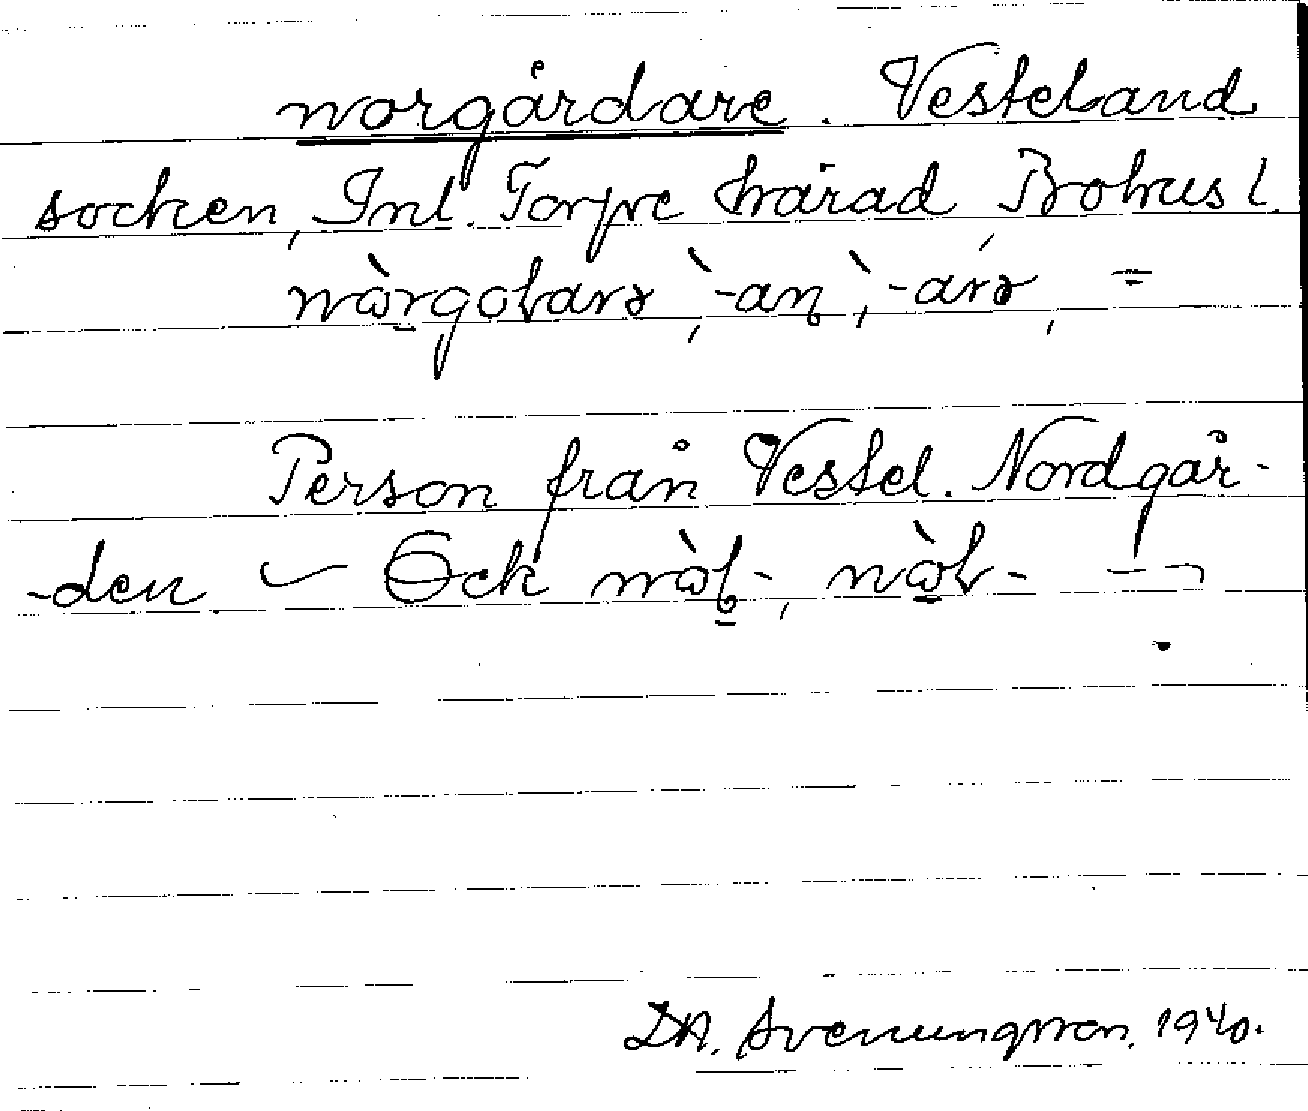 norgårdare. Vesteland
socken, Inl. Torpe härad Bohusl.
-an, =
Person från Vestel. Nordgår-
-den Ock
DA. Svenungsson. 1940.